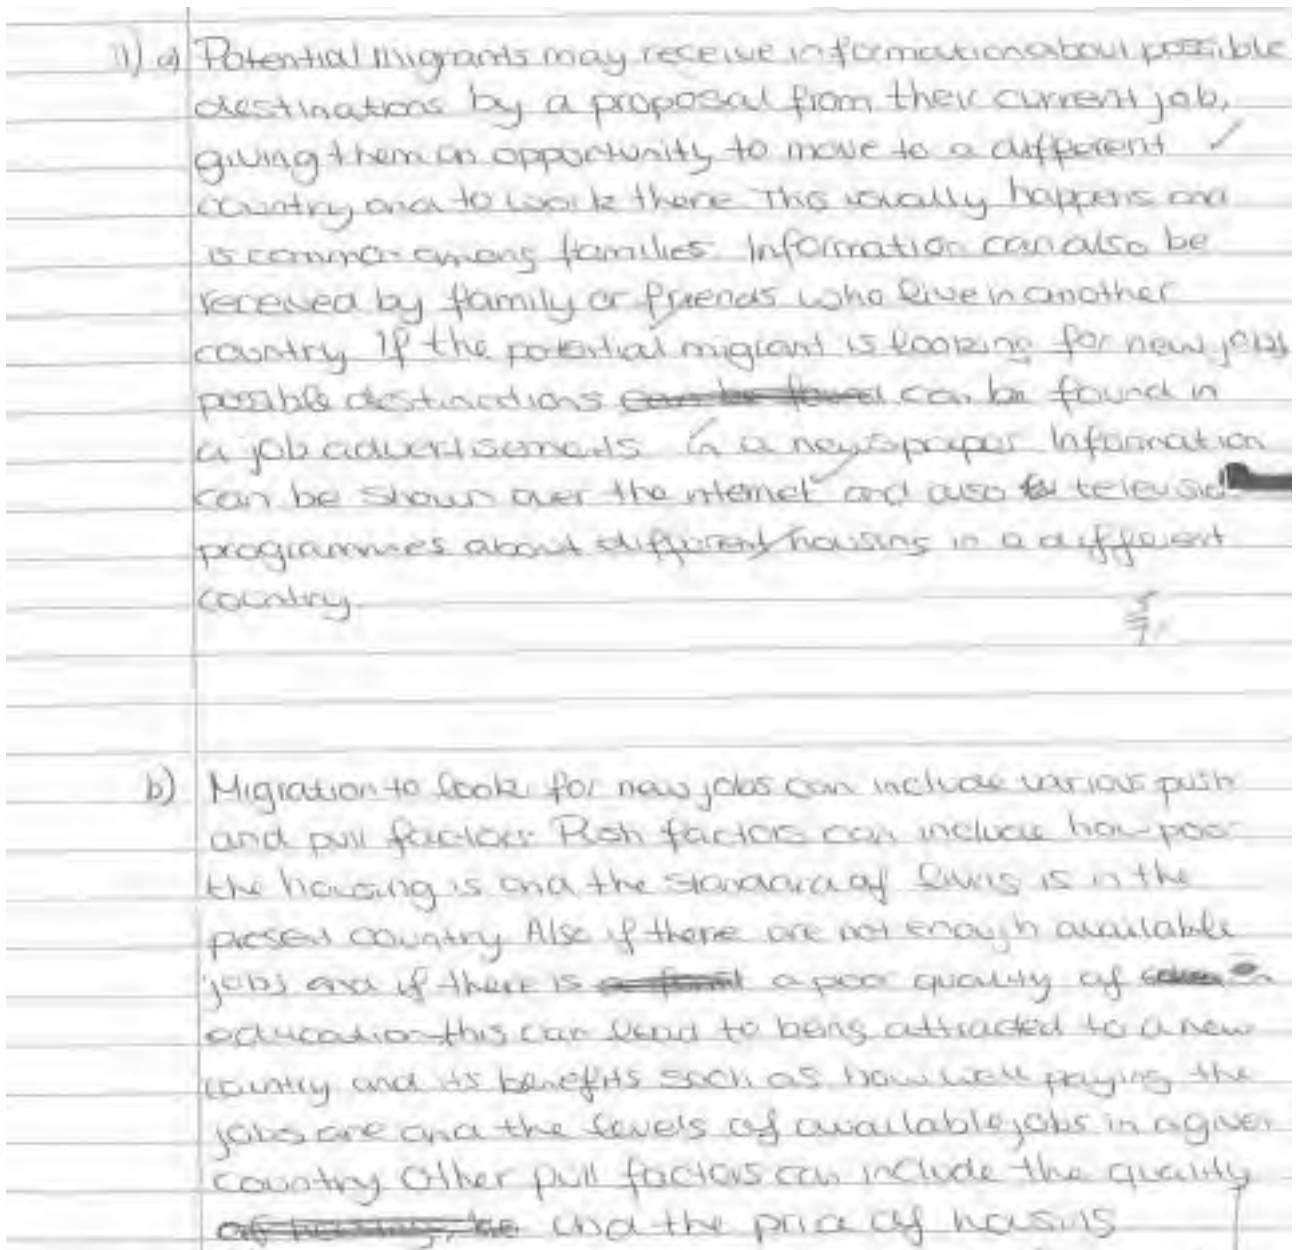 11) a) Potential migrants may receive information about possible
destinations by a proposal from their current job,
giving them an opportunity to move to a different
country and to work there This usually happens and
is common among families. Information can also be
received by family or friends who live in another
country If the potential migrant is looking for new jobs
possible destinations can be found in
a job advertisements in a newspaper Information
can be shown over the internet and also televisio
programmes about different housing in a different
country.
5/7
b) Migration to look for new jobs can include various push
and pull factors. Push factors can include how poor
the housing is and the standard of living is in the
present country Also if there are not enough available
jobs and if there is a poor quality of
education this can lead to being attracted to a new
country and its benefits such as how well paying the
jobs are and the levels of available jobs in a given
country Other pull factors can include the quality
and the price of housing